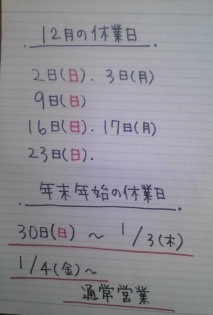 12月の休業日
2日(日).3日(月)
9日(日)
16日(日).17日(月)
23日(日).
年末年始の休業日
30日(日)～1/3(木)
1/4(金)～
通常営業